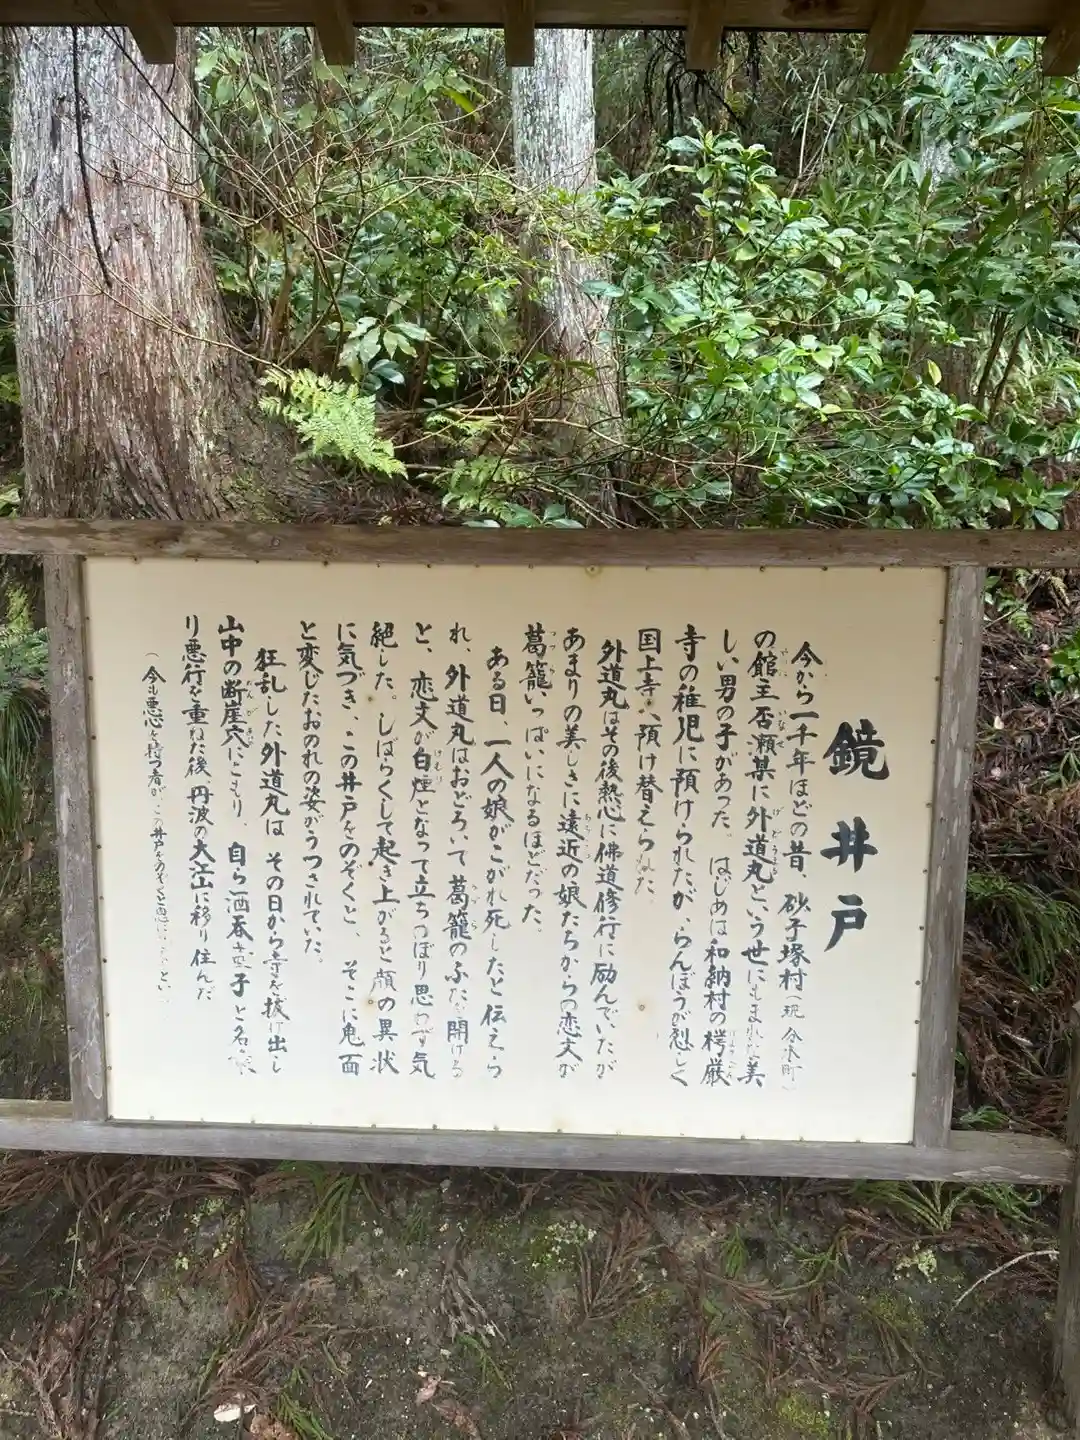 鏡井戸
今から一千年ほどの昔、砂子塚村（現 分水町）
の館主否瀬某に外道丸という世にもまれな美
しい男の子があった。はじめは和納村の楞厳
寺の稚児に預けられたが、らんぼうが烈しく
国上寺へ預け替えられた。
外道丸はその後熱心に佛道修行に励んでいたが
あまりの美しさに遠近の娘たちからの恋文が
葛籠いっぱいになるほどだった。
ある日、一人の娘がこがれ死したと伝えら
れ、外道丸はおどろいて葛籠のふたを開ける
と、恋文が白煙となって立ちのぼり思わず気
絶した。しばらくして起き上がると顔の異状
に気づき、この井戸をのぞくと、そこに鬼面
と変じたおのれの姿がうつされていた。
狂乱した外道丸は その日から寺を抜け出し
山中の断崖穴にこもり、自ら酒呑童子と名
り悪行を重ねた後、丹波の大江山に移り住んだ
（今も悪心を持つ者が、この井戸をのぞくと悪